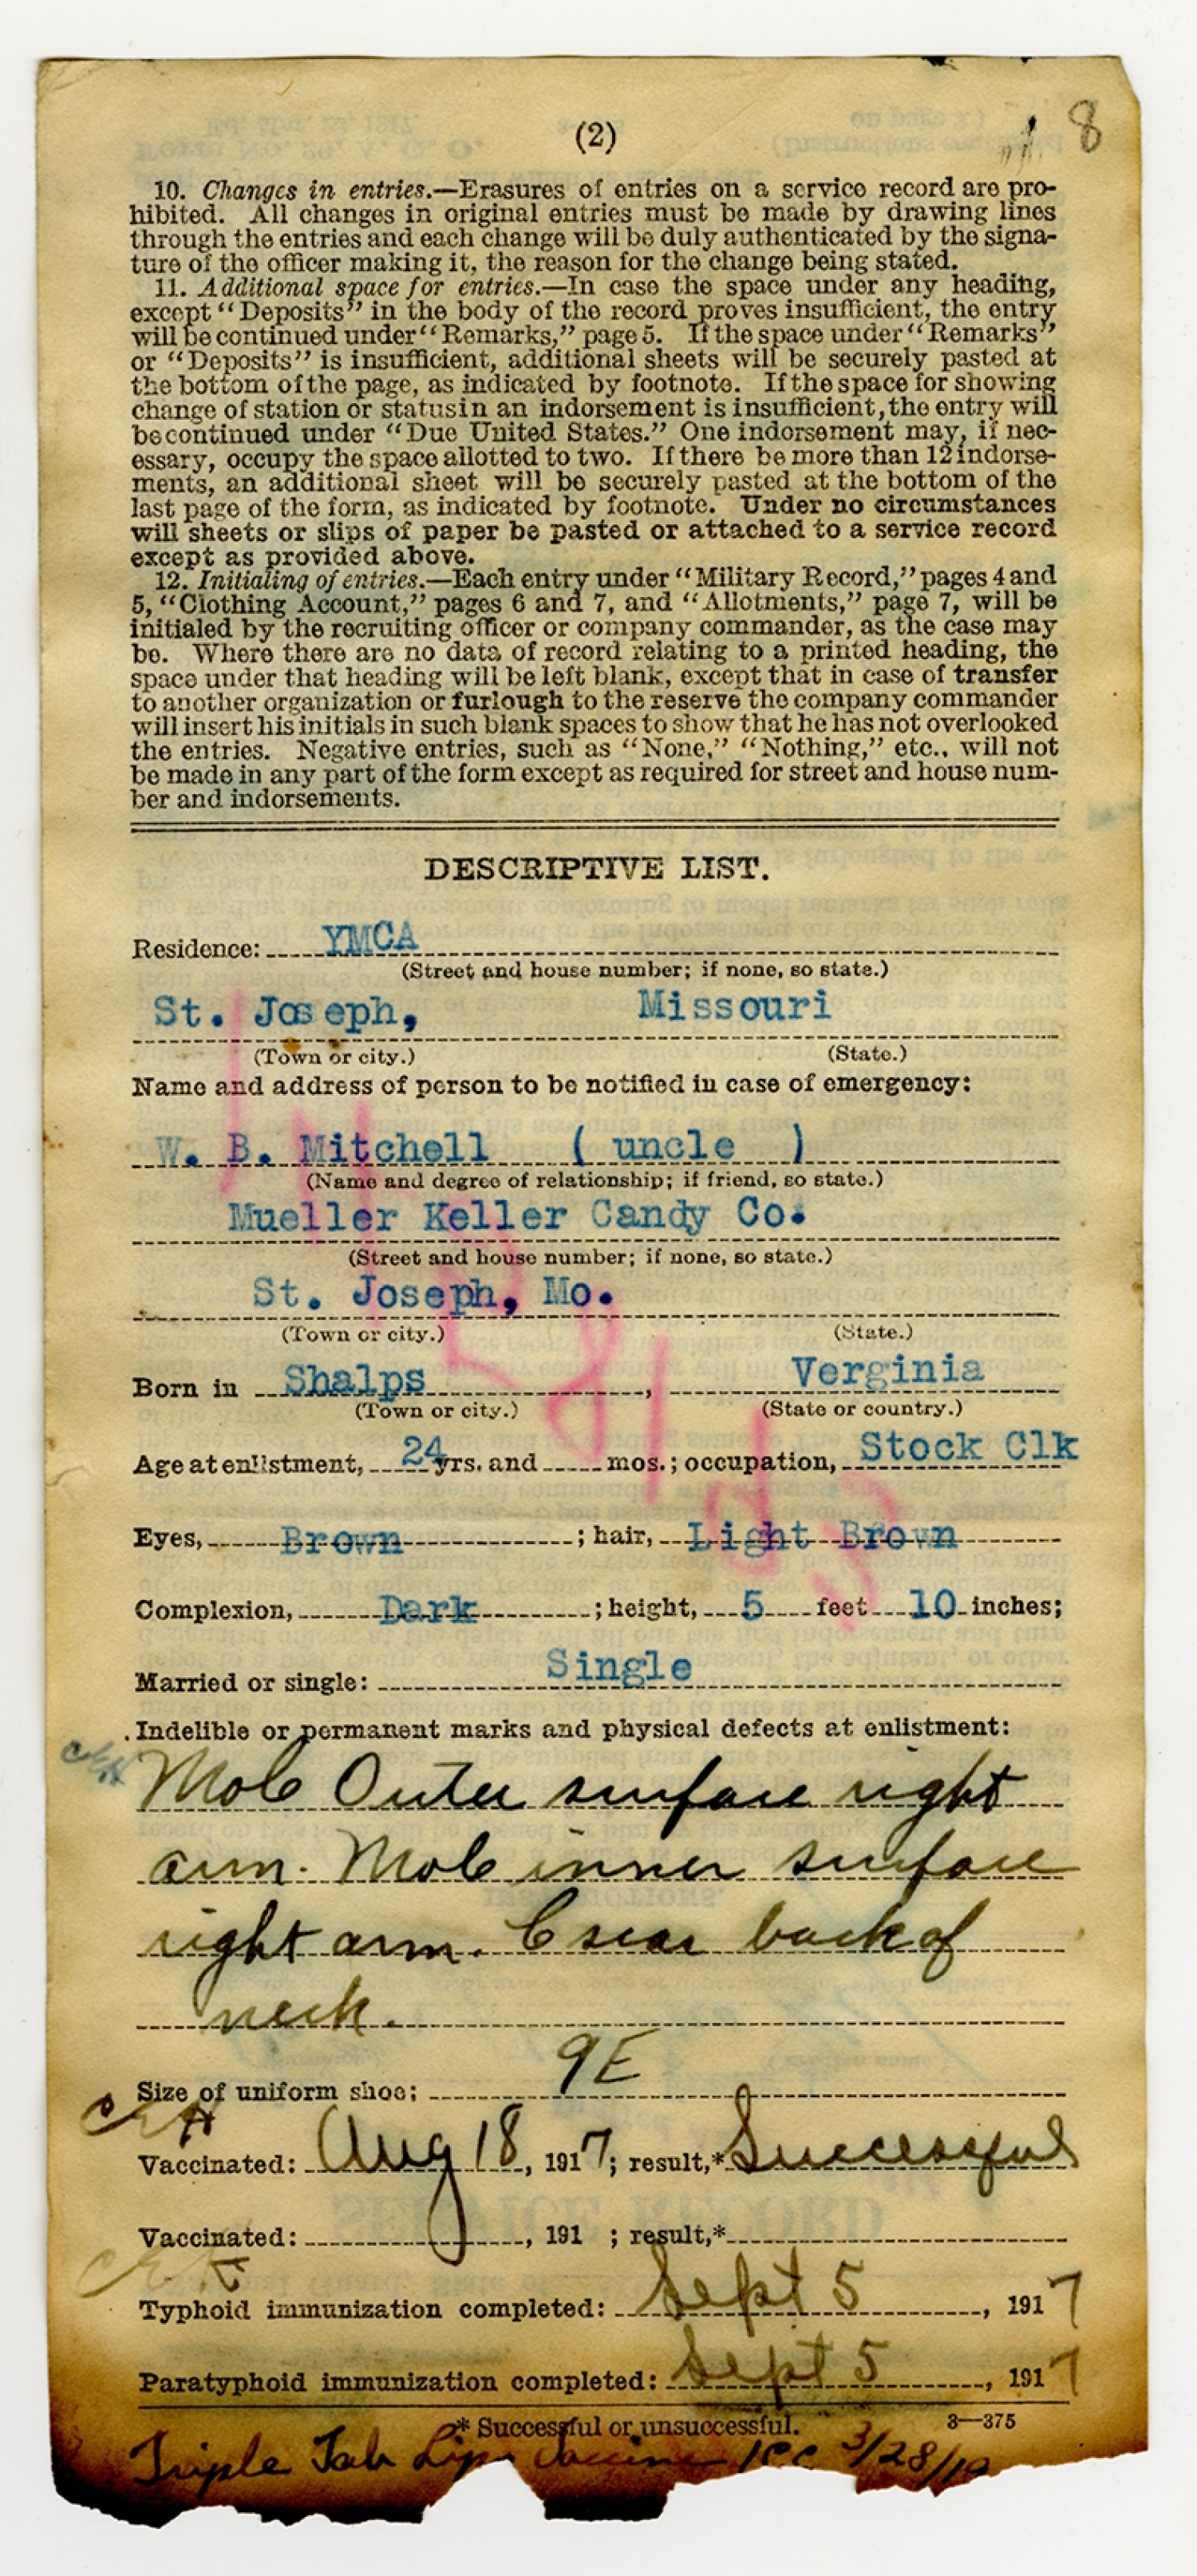 (2)
8
10. Changes in entries.—Erasures of entries on a service record are pro-
hibited. All changes in original entries must be made by drawing lines
through the entries and each change will be duly authenticated by the signa-
ture of the officer making it, the reason for the change being stated.
11. Additional space for entries.—In case the space under any heading,
except "Deposits" in the body of the record proves insufficient, the entry
will be continued under "Remarks," page 5. If the space under "Remarks"
or "Deposits" is insufficient, additional sheets will be securely pasted at
the bottom of the page, as indicated by footnote. If the space for showing
change of station or status in an indorsement is insufficient, the entry will
be continued under "Due United States." One indorsement may, if nec-
essary, occupy the space allotted to two. If there be more than 12 indorse-
ments, an additional sheet will be securely pasted at the bottom of the
last page of the form, as indicated by footnote. Under no circumstances
will sheets or slips of paper be pasted or attached to a service record
except as provided above.
12. Initialing of entries.—Each entry under "Military Record," pages 4 and
5, "Clothing Account," pages 6 and 7, and "Allotments," page 7, will be
initialed by the recruiting officer or company commander, as the case may
be. Where there are no data of record relating to a printed heading, the
space under that heading will be left blank, except that in case of transfer
to another organization or furlough to the reserve the company commander
will insert his initials in such blank spaces to show that he has not overlooked
the entries. Negative entries, such as "None," "Nothing," etc., will not
be made in any part of the form except as required for street and house num-
ber and indorsements.
DESCRIPTIVE LIST.
Residence: YMCA
(Street and house number; if none, so state.)
St. Joseph, Missouri
(Town or city.) (State.)
Name and address of person to be notified in case of emergency:
W. B. Mitchell ( uncle )
(Name and degree of relationship; if friend, so state.)
Mueller Keller Candy Co.
(Street and house number; if none, so state.)
St. Joseph, Mo.
(Town or city.) (State.)
Born in Shalps, Verginia
(Town or city.) (State or country.)
Age at enlistment, 24 yrs. and mos.; occupation, Stock Clk
Eyes, Brown; hair, Light Brown
Complexion, Dark; height, 5 feet 10 inches;
Married or single: Single
Indelible or permanent marks and physical defects at enlistment:
Mole Outer surface right
arm. Mole inner surface
right arm. C scar back of
neck.
Size of uniform shoe: 9E
Vaccinated: Aug 18, 1917; result,* Successful
Vaccinated: , 191 ; result,*
Typhoid immunization completed: Sept 5, 1917
Paratyphoid immunization completed: Sept 5, 1917
* Successful or unsuccessful. 3—375
Triple Lipo Vaccine 1cc 3/28/19